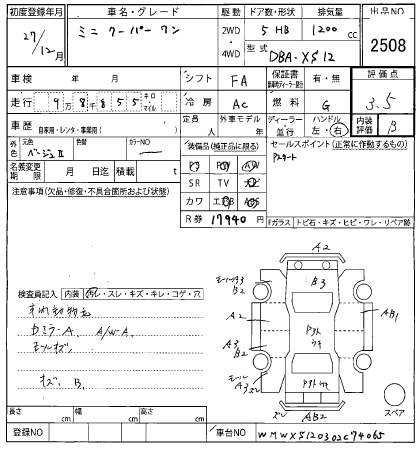 初度登録年月 車名・グレード 駆動 ドア数・形状 排気量 出品NO
27/12月 ミニ クーパー ワン 2WD・4WD 5 HB 1200cc 2508
型式 DBA-XS12
車検 年 月 シフト FA 保証書 有・無 評価点
走行 9万8千855 キロ マイル 冷房 AC 燃料 G 3.5
車歴 自家用・レンタ・事業用( ) 定員 人 外車モデル 年 ディーラー・並行 ハンドル 左・右 内装評価 B
外色 元色 ベージュII 色替 カラーNO 装備品(純正品に限る) セールスポイント(正常に作動するもの)
名義変更期限 月 日迄 積載 t PS PW AW Pスタート
注意事項(欠品・修復・不具合箇所および状態) SR TV ナビ
カワ エアB ABS
R券 17940円 Fガラス トビ石・キズ・ヒビ・ワレ・リペア跡
A2
B3
A3
B2
A2
AB1
A3
B2
A3
AB2
検査員記入 内装 汚レ・スレ・キズ・キレ・コゲ・穴
カミラーA A/W-A
モールキズ
キズ B
スペア
長さ cm 幅 cm 高さ cm
登録NO 車台NO WMWXS120302C74065